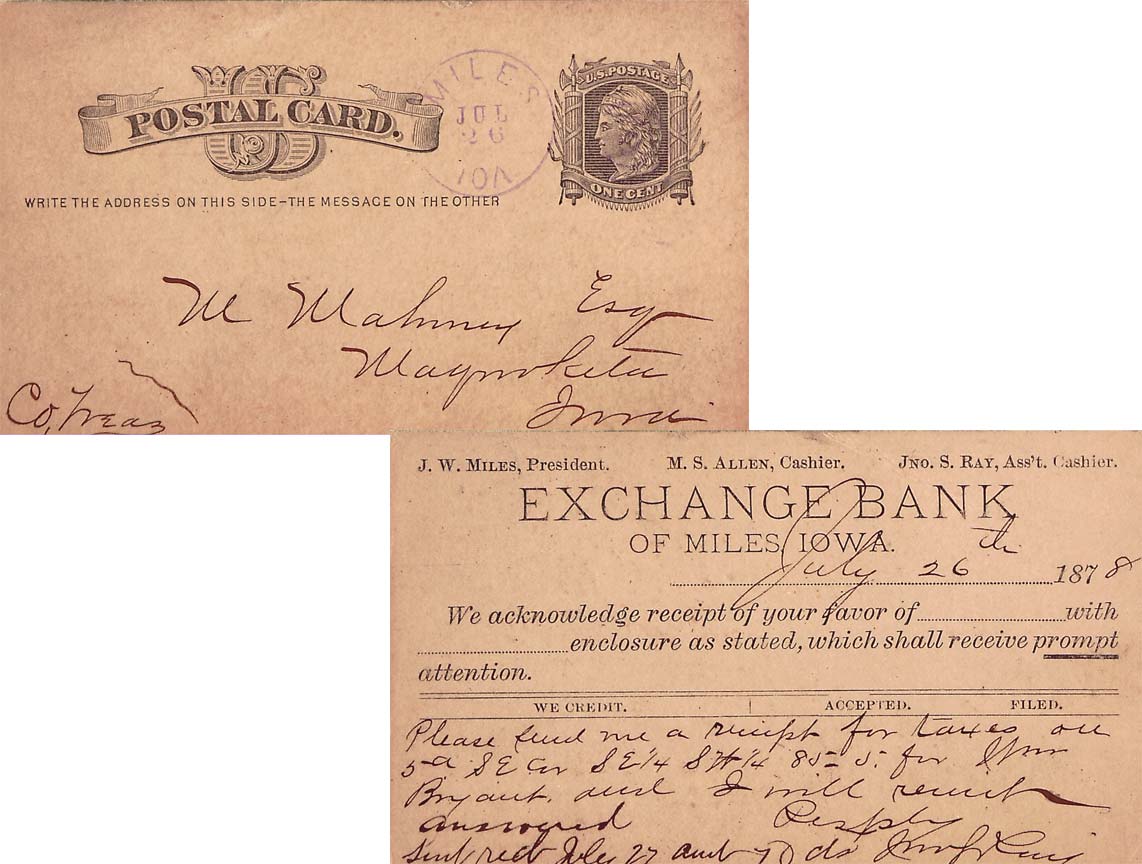 US
POSTAL CARD.
MILES
JUL
26
IOA
U.S. POSTAGE
ONE CENT
WRITE THE ADDRESS ON THIS SIDE–THE MESSAGE ON THE OTHER
M Mahoney Esq
Maquoketa
Iowa
Co, Treas
J. W. MILES, President. M. S. ALLEN, Cashier. JNO. S. RAY, Ass't. Cashier.
EXCHANGE BANK
OF MILES, IOWA.
July 26th 1878
We acknowledge receipt of your favor of with
enclosure as stated, which shall receive prompt
attention.
WE CREDIT. ACCEPTED. FILED.
Please send me a receipt for taxes on
5a SE Cor SE¼ SW¼ 85= 5. for Wm
Bryant. and I will remit
answered Respty
Sent rect July 27 amt